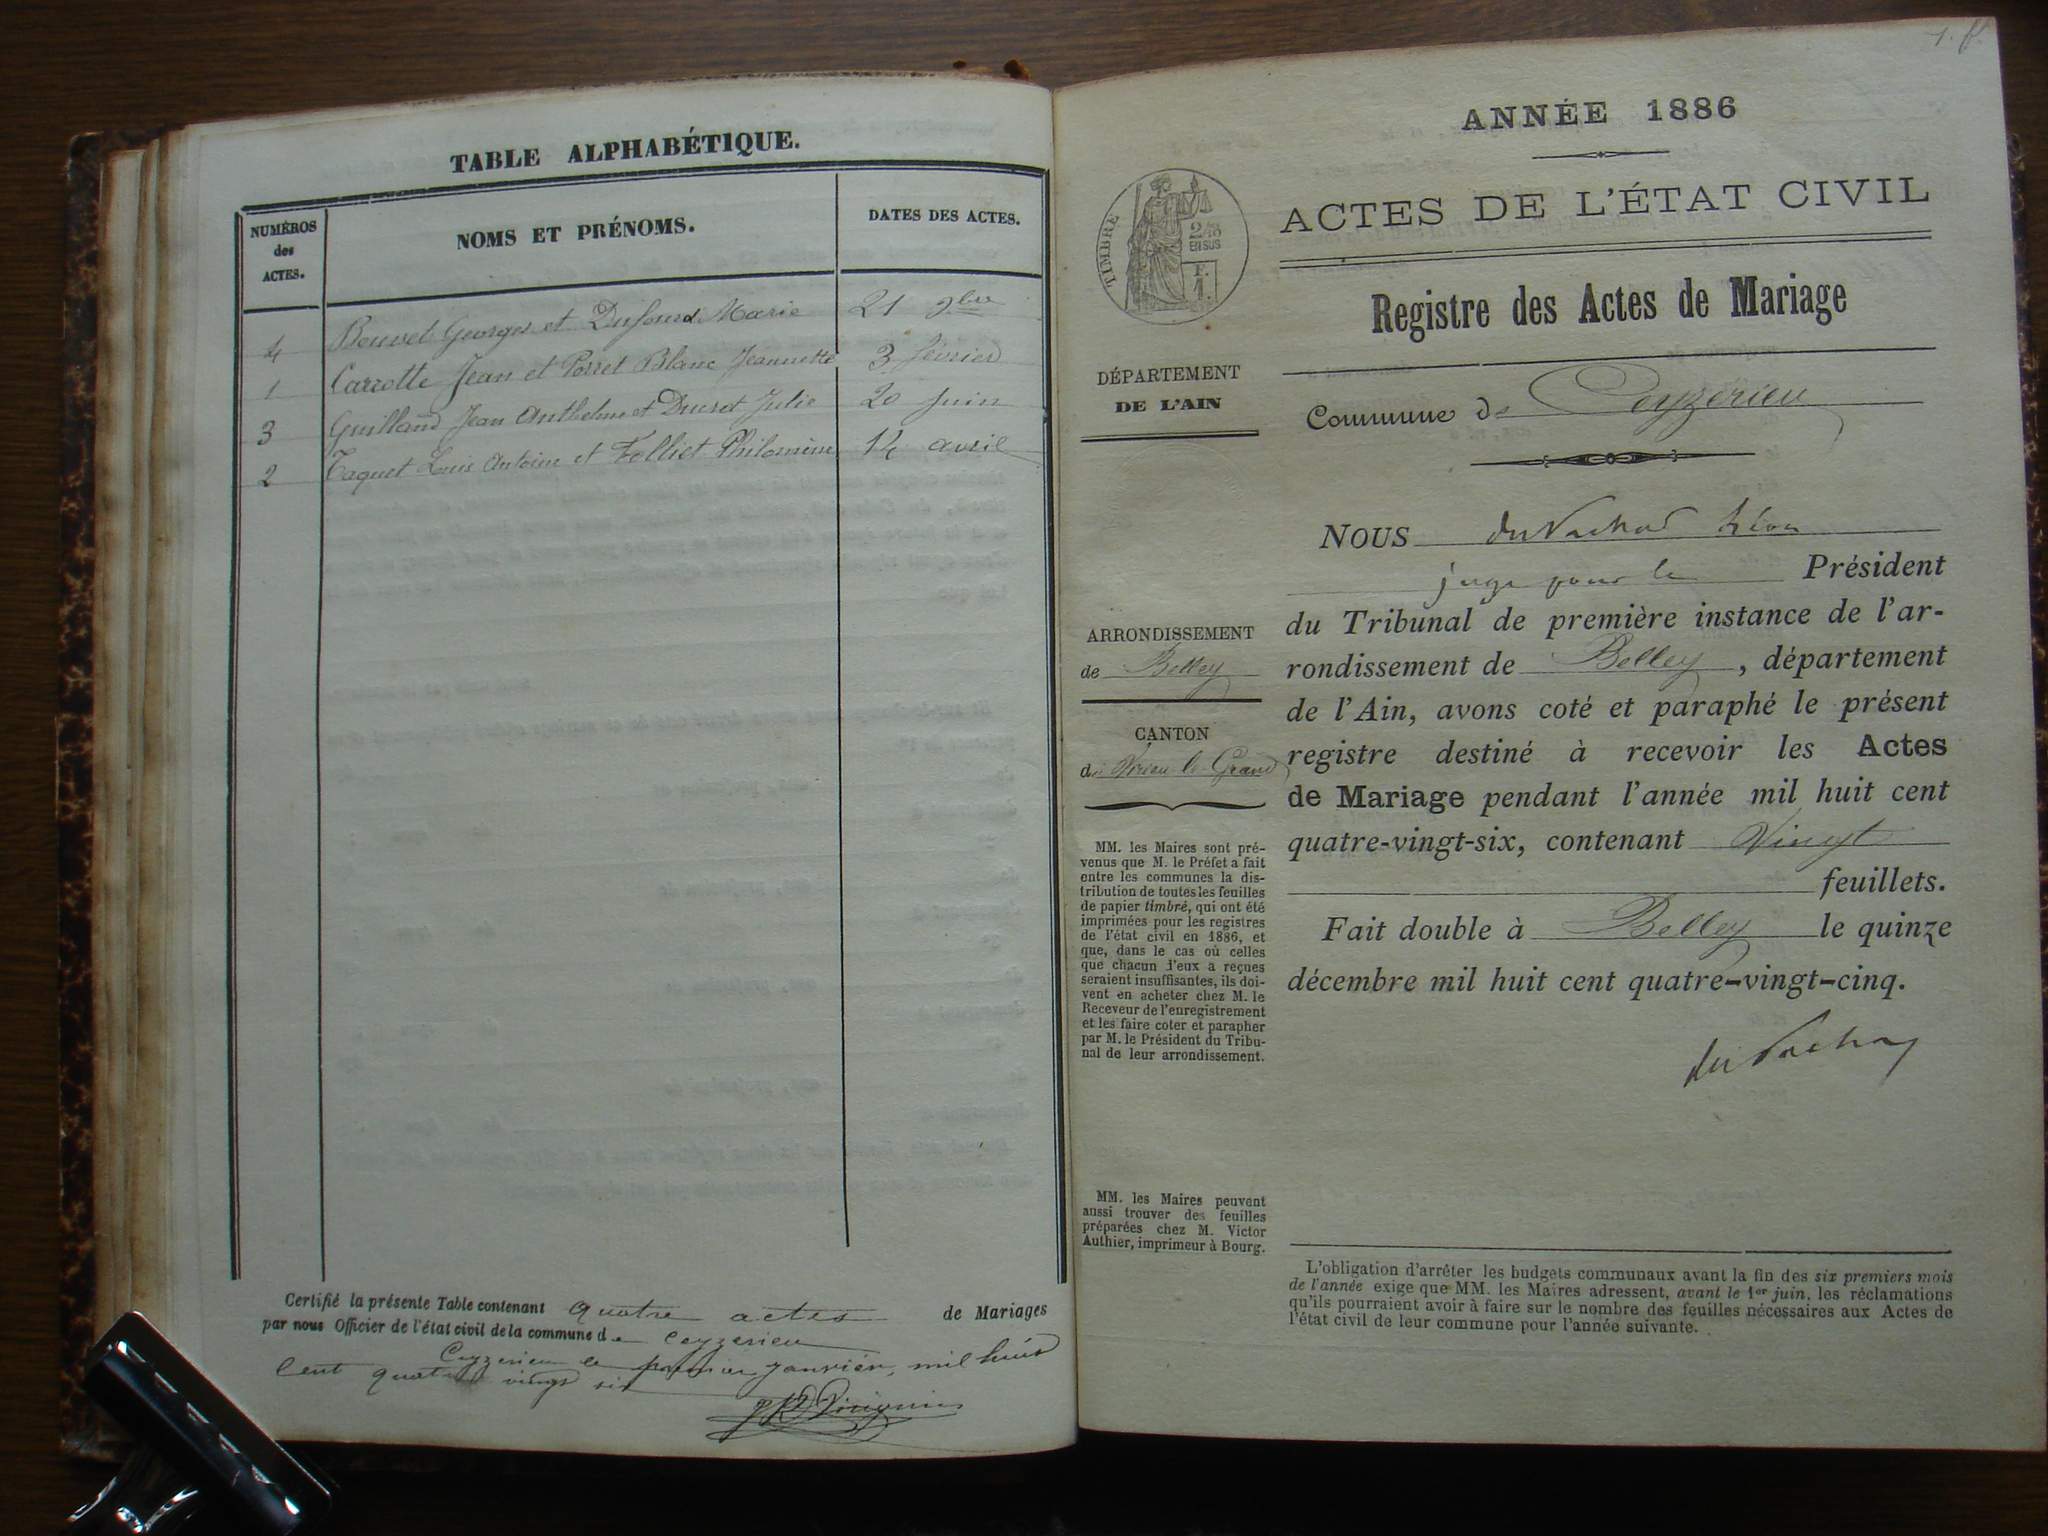 TABLE ALPHABÉTIQUE.
NUMÉROS des ACTES.
NOMS ET PRÉNOMS.
DATES DES ACTES.
4 Bouvet Georges et Dufour Marie 21 9bre
1 Carrotte Jean et Porret Blanc Jeannette 3 février
3 Guilland Jean Anthelme et Julie 20 Juin
2 Taquet Louis Antoine et Folliet Philomène 14 avril
Certifié la présente Table contenant quatre actes de Mariages
par nous Officier de l'état civil de la commune de Ceyzerieu
Ceyzerieu le premier Janvier, mil huit
cent quatre vingt six
1. f.
ANNÉE 1886
ACTES DE L'ÉTAT CIVIL
TIMBRE
2/10
EN SUS
F.
1.
Registre des Actes de Mariage
DÉPARTEMENT
DE L'AIN
Commune de Ceyzérieu
ARRONDISSEMENT
de Belley
CANTON
de Virieu-le-Grand
MM. les Maires sont pré-
venus que M. le Préfet a fait
entre les communes la dis-
tribution de toutes les feuilles
de papier timbré, qui ont été
imprimées pour les registres
de l'état civil en 1886, et
que, dans le cas où celles
que chacun d'eux a reçues
seraient insuffisantes, ils doi-
vent en acheter chez M. le
Receveur de l'enregistrement
et les faire coter et parapher
par M. le Président du Tribu-
nal de leur arrondissement.
MM. les Maires peuvent
aussi trouver des feuilles
préparées chez M. Victor
Authier, imprimeur à Bourg.
NOUS du Vachat Léon
juge pour le Président
du Tribunal de première instance de l'ar-
rondissement de Belley, département
de l'Ain, avons coté et paraphé le présent
registre destiné à recevoir les Actes
de Mariage pendant l'année mil huit cent
quatre-vingt-six, contenant Vingt
feuillets.
Fait double à Belley le quinze
décembre mil huit cent quatre-vingt-cinq.
du Vachat
L'obligation d'arrêter les budgets communaux avant la fin des six premiers mois
de l'année exige que MM. les Maires adressent, avant le 1er juin, les réclamations
qu'ils pourraient avoir à faire sur le nombre des feuilles nécessaires aux Actes de
l'état civil de leur commune pour l'année suivante.